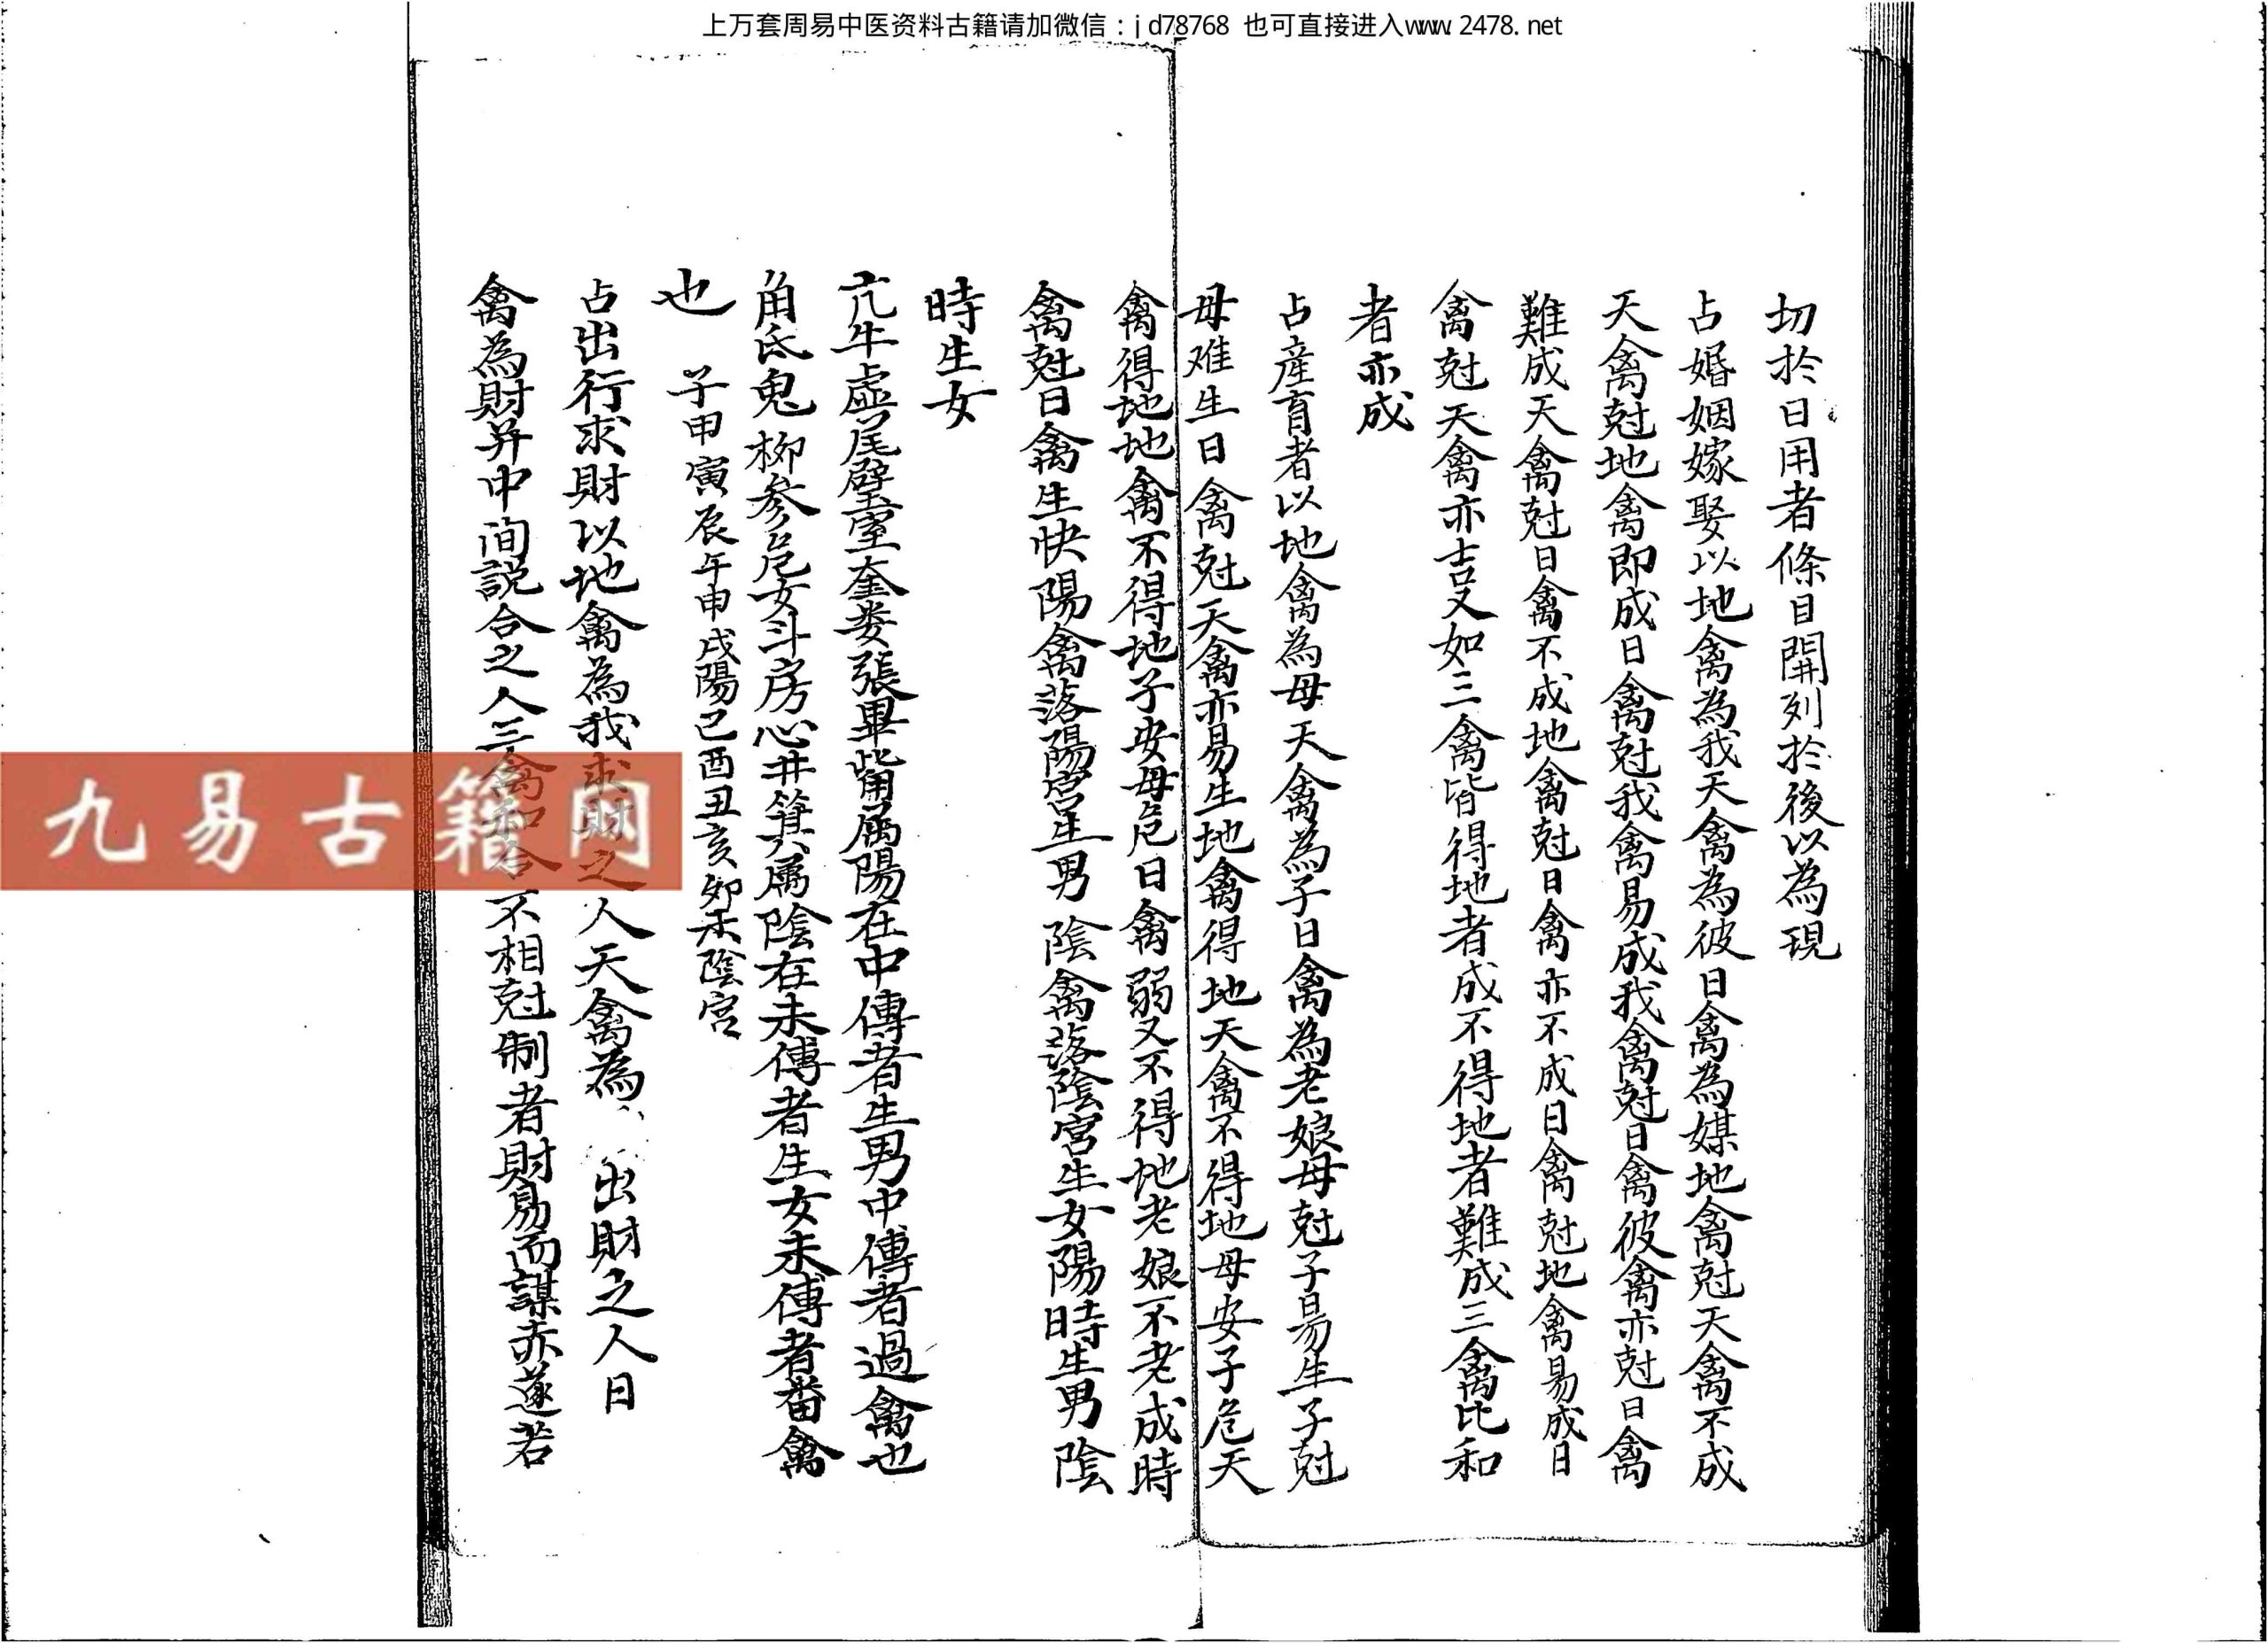 上万套周易中医资料古籍请加微信：jd78768 也可直接进入www.2478.net
切於日用者條目開列於後以為現
占婚姻嫁娶以地禽為我天禽為彼日禽為媒地禽尅天禽不成
天禽尅地禽即成日禽尅我禽易成我禽尅日禽彼禽亦尅日禽
難成天禽尅日禽不成地禽尅日禽亦不成日禽尅地禽易成日
禽尅天禽亦吉又如三禽皆得地者成不得地者難成三禽比和
者亦成
占産育者以地禽為母天禽為子日禽為老娘母尅子易生子尅
母难生日禽尅天禽亦易生地禽得地天禽不得地母安子危天
禽得地地禽不得地子安母危日禽弱又不得地老娘不老成時
禽尅日禽生快陽禽落陽宮生男 陰禽落陰宮生女陽時生男陰
時生女
亢牛虛尾壁室奎娄張畢觜屬陽在中傳者生男中傳者過禽也
角氐鬼柳参危女斗房心井箕屬陰在未傳者生女未傳者番禽
也 子申寅辰午申戌陽己酉丑亥卯未陰宮
占出行求財以地禽為我求財之人天禽為 出財之人日
禽為財并中间説合之人三禽和合不相尅制者財易而謀亦遂若
九易古籍网